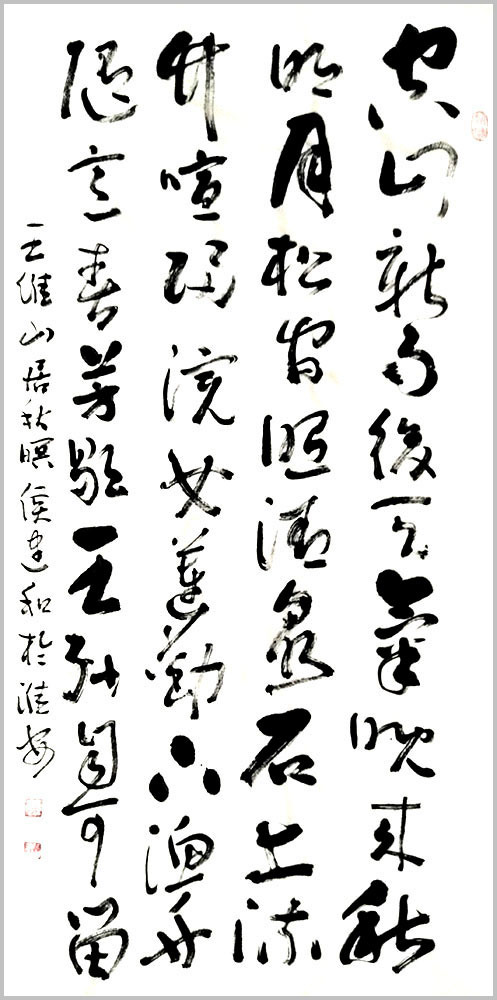 空山新雨後天氣晚來秋
明月松間照清泉石上流
竹喧歸浣女蓮動下漁舟
隨意春芳歇王孫自可留
王維山居秋暝侯和於淮安